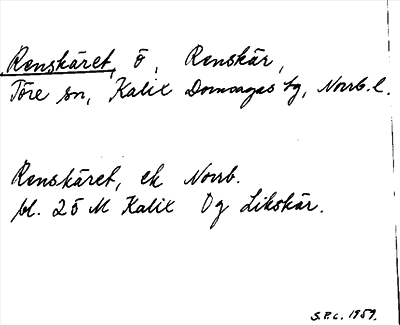 Renskäret, ö, Renskär,
Töre sn, Kalix Domsagas tg, Norrb. l.
Renskäret, ek Norrb.
bl. 25 M Kalix Og Likskär.
S.P.C. 1959.